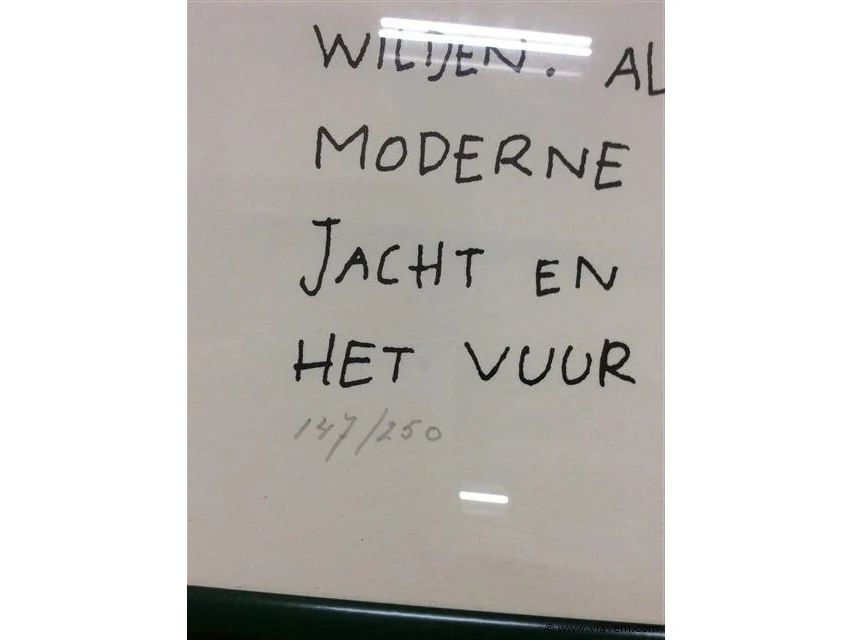 WILDEN. AL
MODERNE
JACHT EN
HET VUUR
147/250
© www.vlavem.com